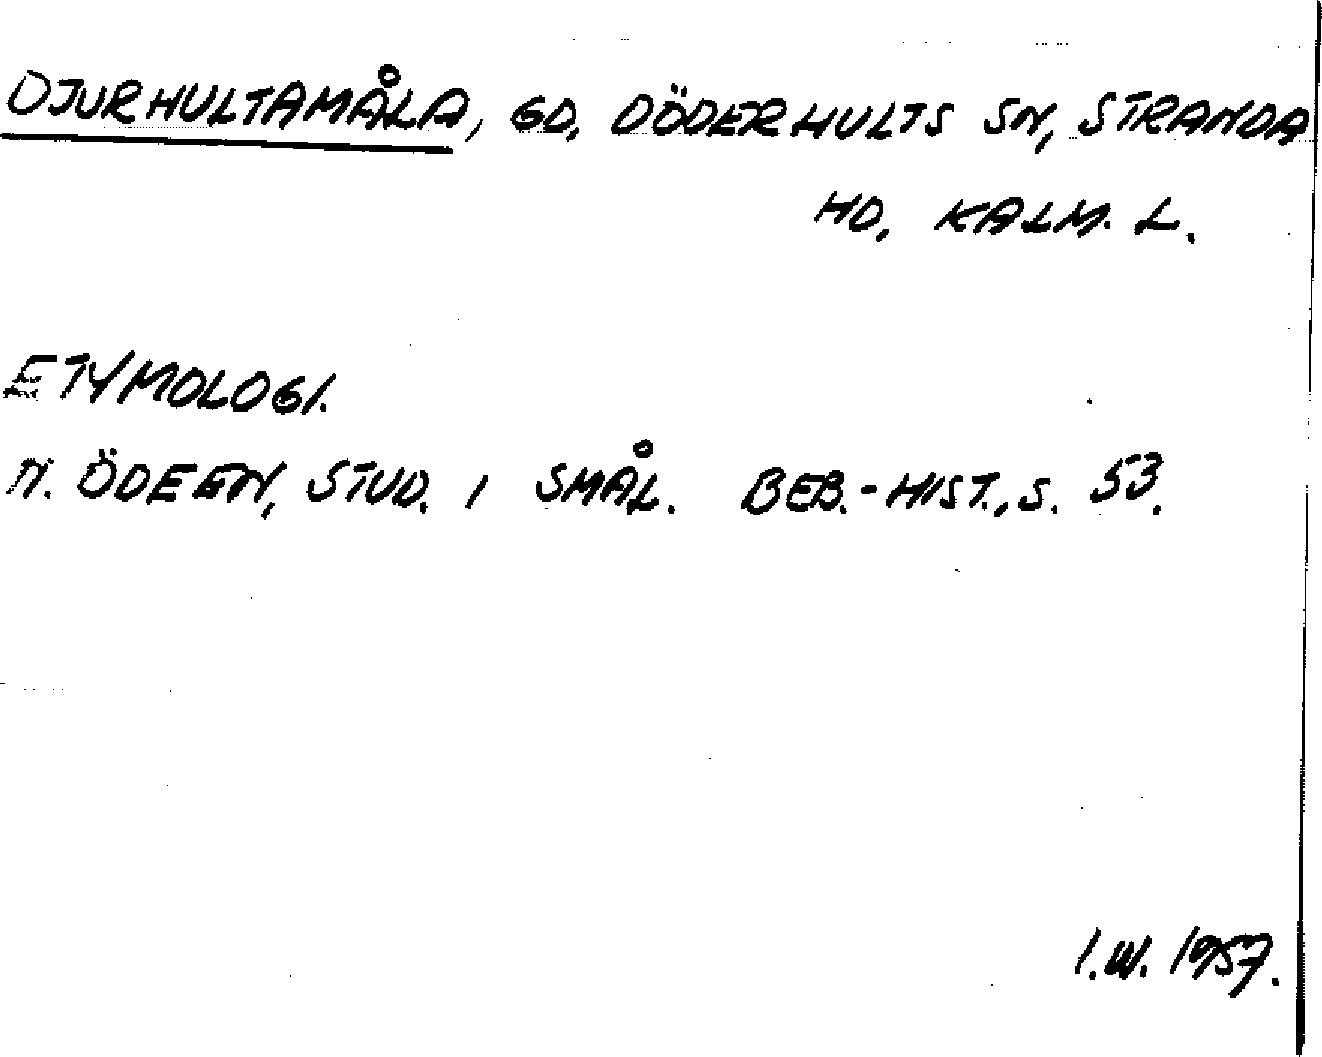 DJURHULTAMÅLA, GD, DÖDERHULTS SN, STRANDA
HD, KALM. L.
ETYMOLOGI.
N. ÖDEEN, STUD. I SMÅL. BEB.-HIST., S. 53.
I.W. 1957.